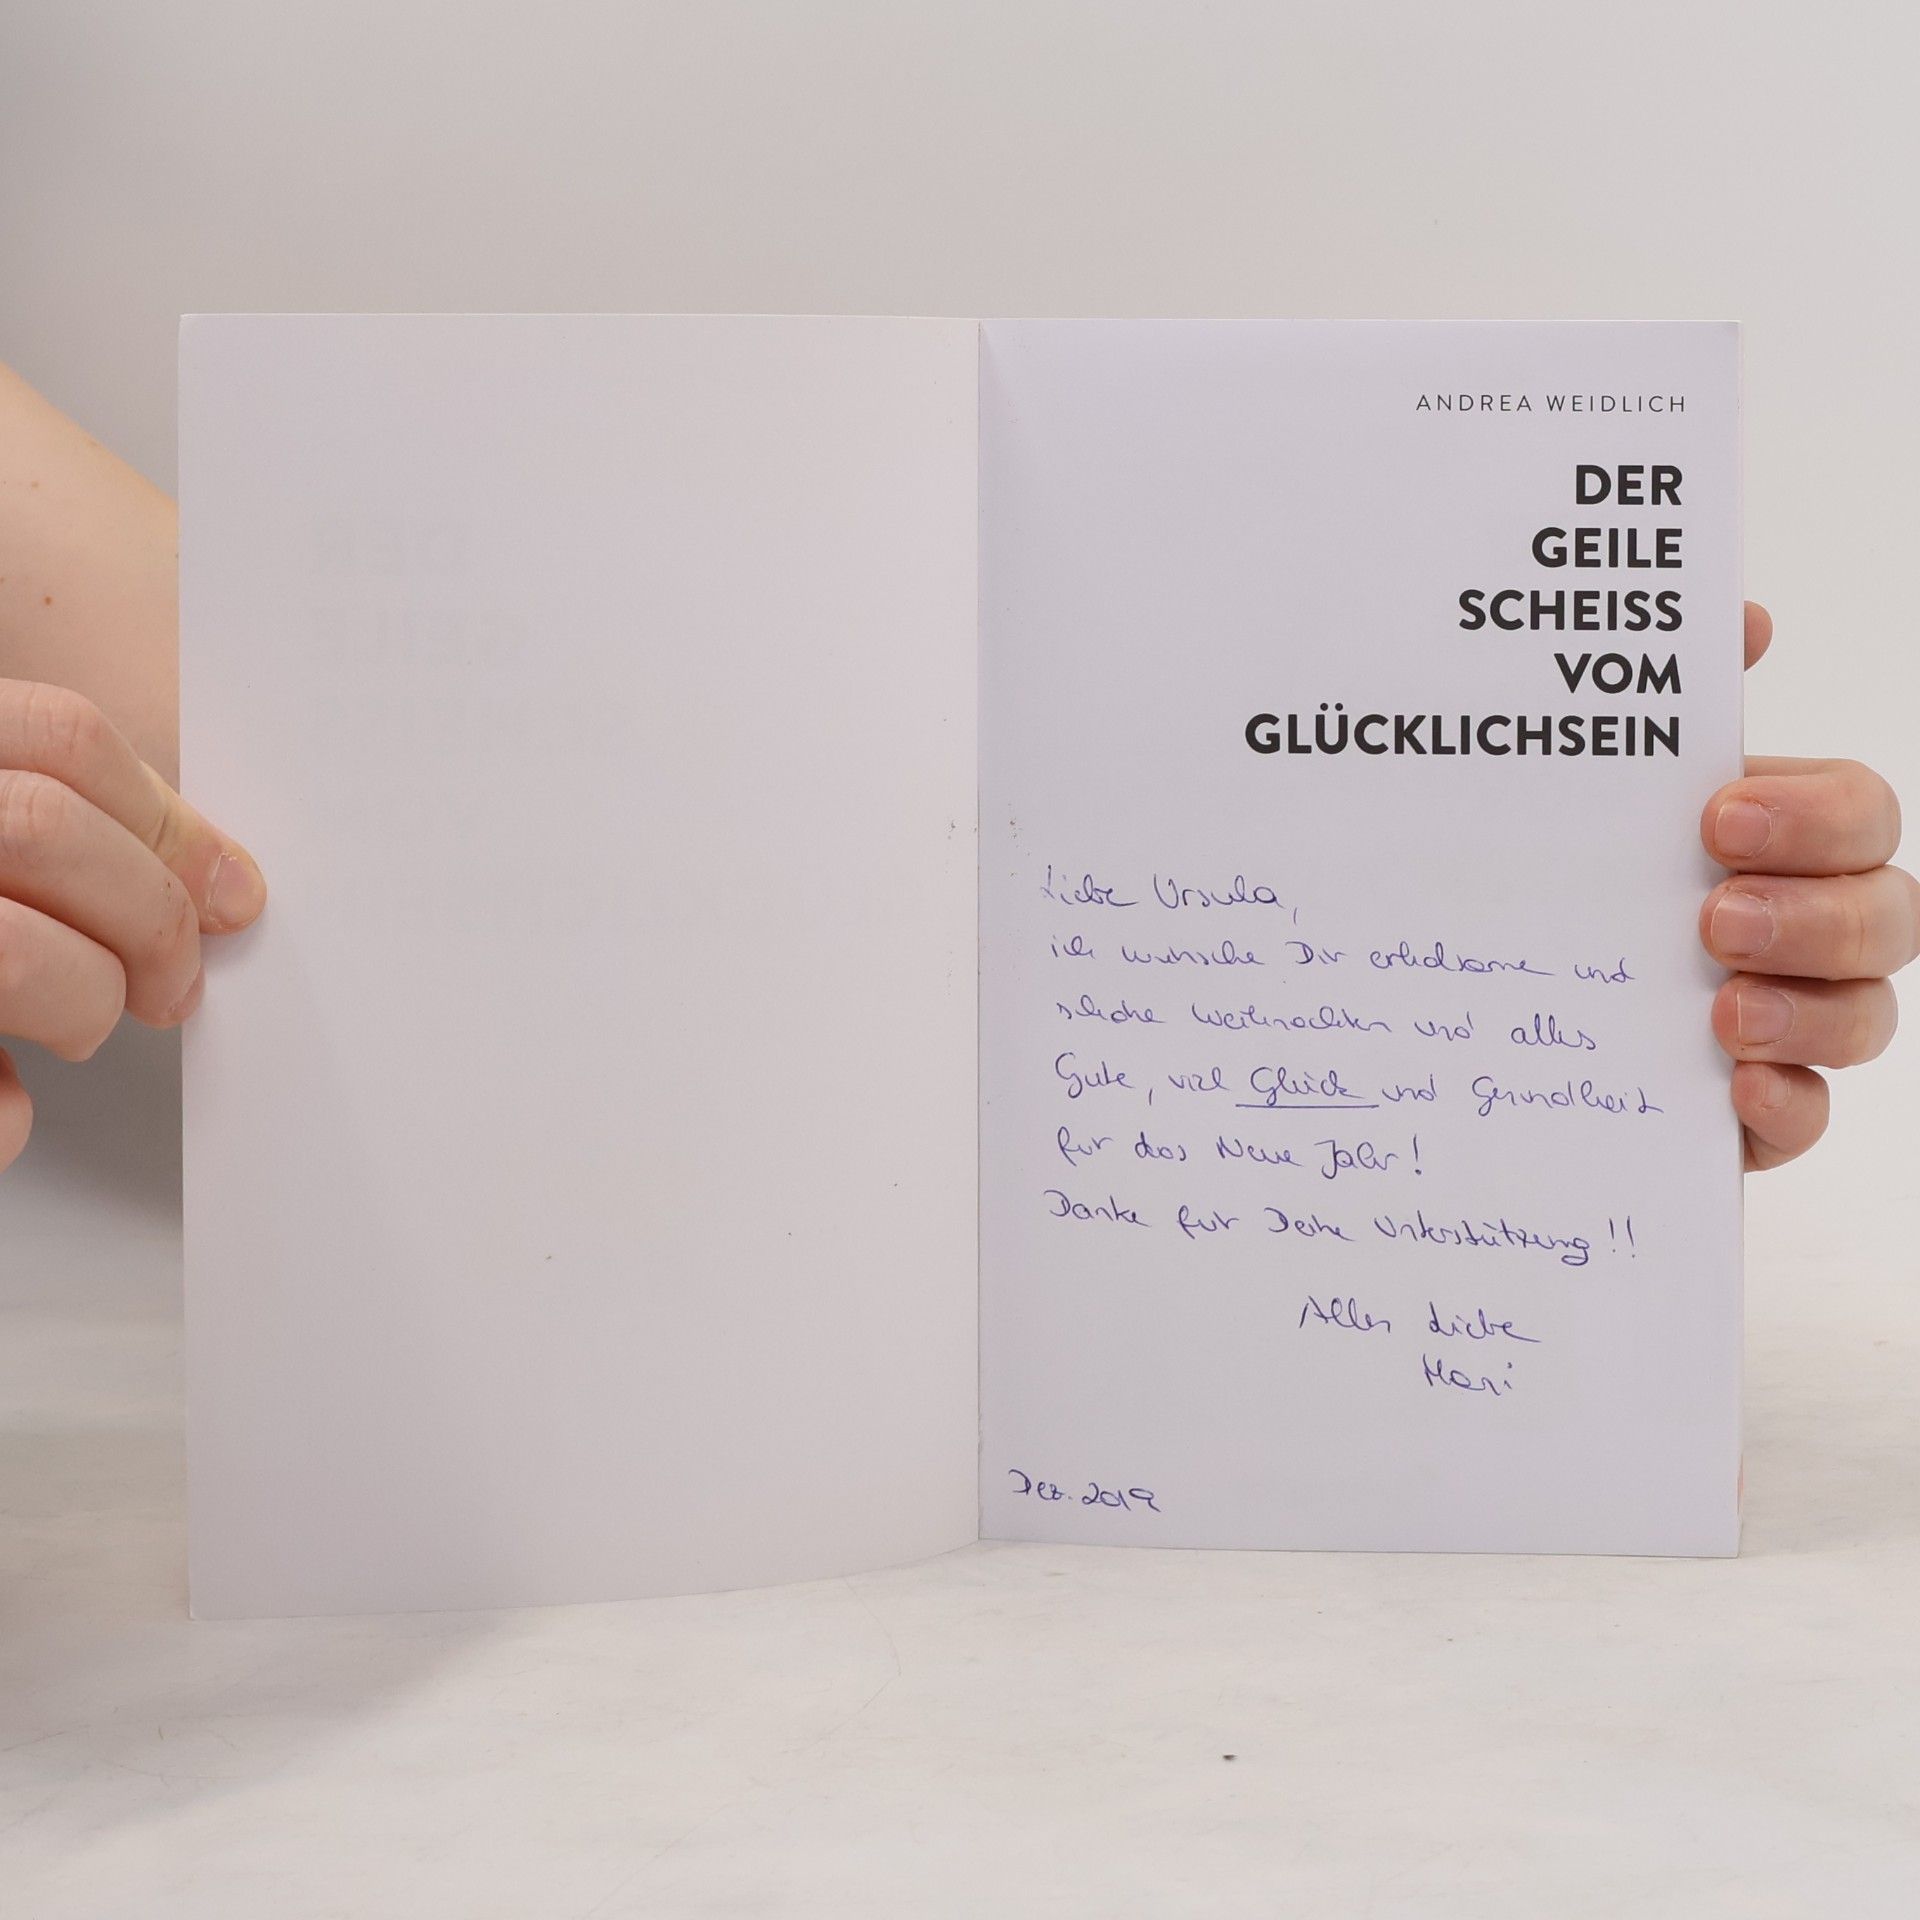 ANDREA WEIDLICH
DER
GEILE
SCHEISS
VOM
GLÜCKLICHSEIN
Liebe Ursula,
ich wünsche Dir erholsame und
schöne Weihnachten und alles
Gute, viel Glück und Gesundheit
für das Neue Jahr!
Danke für Deine Unterstützung!!
Alles Liebe
Dez. 2019